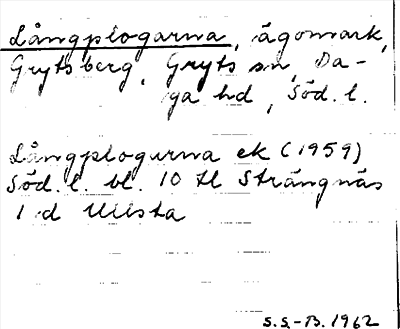 Långplogarna, ägomark,
Grytsberg, Gryts sn, Da-
ga hd, Söd. l.
Långplogarna ek (1959)
Söd. l. bl. 10 tl Strängnäs
1 d Ullsta
S.S.-B. 1962